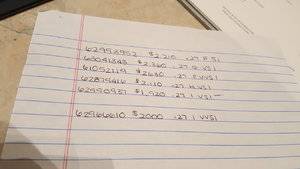 62993952 $2,210 .27 F SI
63041343 $2,360 .27 G VSI
61052119 $2630 .27 F VVSI
62879416 $2,110 .27 H VSI
62990937 $1,920 .27 I VSI
62966610 $2000 .27 I VVSI